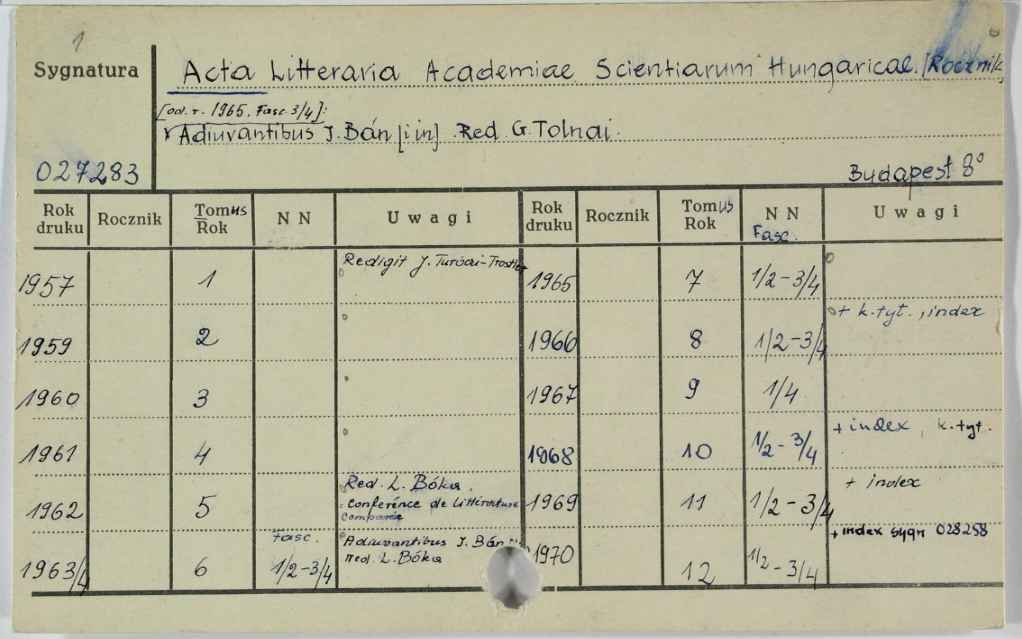 1
Sygnatura
Acta Litteraria Academiae Scientiarum Hungaricae. [Roczni
[od. r. 1965. Fasc. 3/4]:
Adiuvantibus J. Bán [i in] . Red G. Tolnai.
027283
Budapest 8°
Rok druku Rocznik Tomus Rok NN Uwagi Rok druku Rocznik Tomus Rok NN Fasc. Uwagi
1957 1 Redigit J. Turóczi-Trostler 1965 7 1/2-3/4
1959 2 1966 8 1/2-3/4 + k.tyt., index
1960 3 1967 9 1/4
1961 4 1968 10 1/2-3/4 + index, k.tyt.
1962 5 Red. L. Bóka. Conférence de Littérature Comparée 1969 11 1/2-3/4 + index
1963/4 6 Fasc. 1/2-3/4 Adiuvantibus J. Bán Red. L. Bóka 1970 12 1/2-3/4 + index sygn 028258